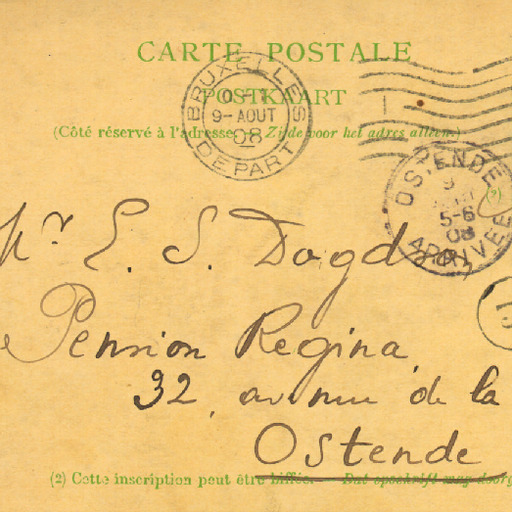 CARTE POSTALE
POSTKAART
(Côté réservé à l'adresse. — Zijde voor het adres alleen.)
BRUXELLES
9-AOUT
08
DEPART
OSTENDE
5-6
08
ARRIVÉE
Mr E. S.
Pension Regina
32, avenue de la
Ostende
(2) Cette inscription peut être biffée. — Dat opschrift mag doorg